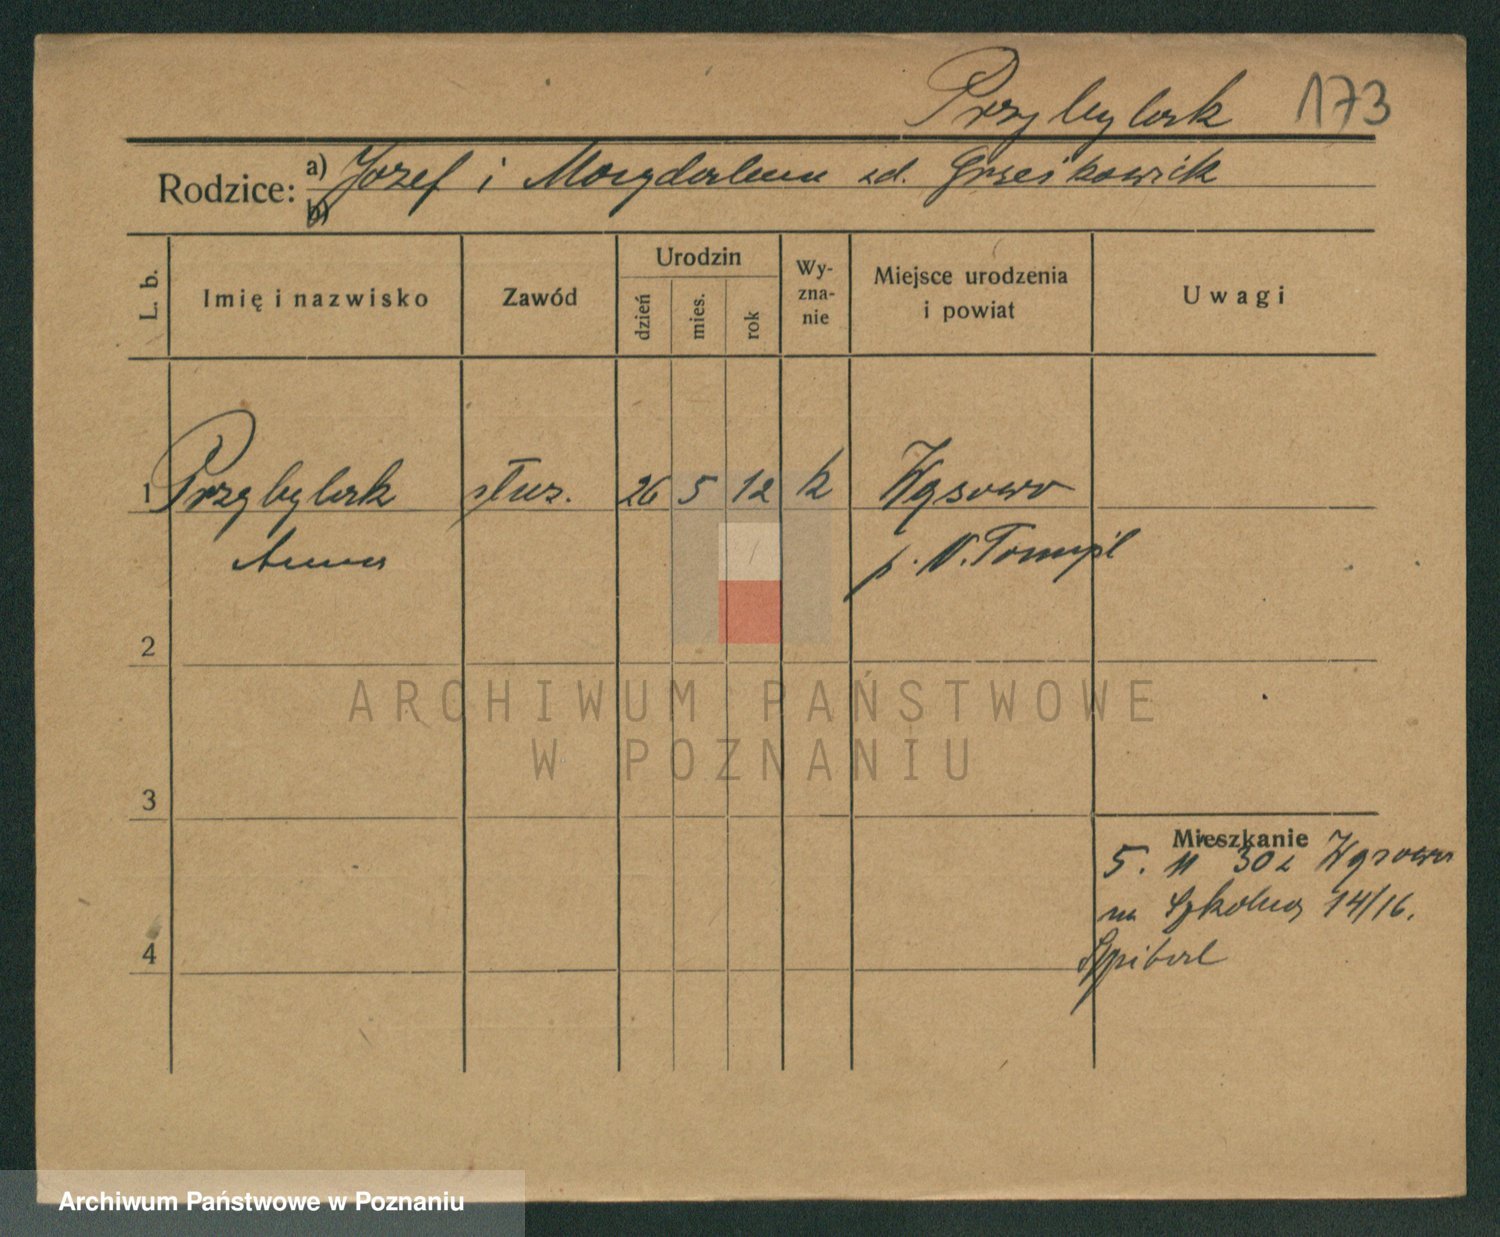 Przybylak 173
Rodzice: a) Jozef i Magdalena zd. Grześkowiak
b)
L. b. Imię i nazwisko Zawód Urodzin dzień mies. rok Wy-zna-nie Miejsce urodzenia i powiat Uwagi
1 Przybylak służ. 26 5 12 k Wąsowo
Anna p. N. Tomyśl
2
ARCHIWUM PAŃSTWOWE
W POZNANIU
3
Mieszkanie
5. 11 30 z Wąsowa
na Szkolną 14/16.
4
Szpital
Archiwum Państwowe w Poznaniu